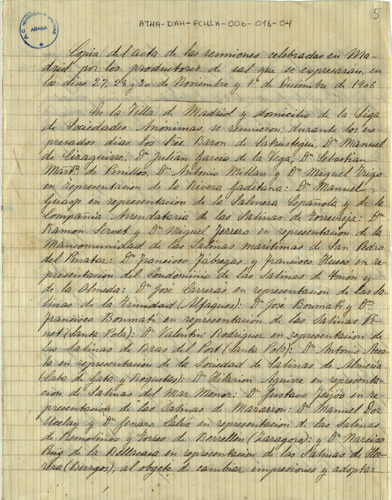 ATHA-DAH-FCHZA-006-016-04
5
ARABA
Copia del acta de las reuniones celebradas en Ma-
drid por los productores de sal que se expresarán, en
los días 27, 28 y 30 de Noviembre y 1º de Diciembre de 1906
En la Villa de Madrid y domicilio de la Liga
de Sociedades Anónimas, se reunieron, durante los ex-
presados días los Sres Baron de Satrústegui, Dn Manuel
de Eizaguirre, Dn Julian Garcia de la Vega, Dn Sebastian
Martz de Pinillos, Dn Antonio Millan y Dn Miguel
en representacion de la Rivera Gaditana: Dn Manuel
Guasp en representacion de la Salinera Española y de la
Compañia Arrendataria de las Salinas de Torrevieja: Dn
Ramon Servet y Dn Miguel Ferrero en representacion de la
Mancomunidad de las Salinas marítimas de San Pedro
del Pinatar: Dn Francisco Zabezas y Francisco Museo en re-
presentacion del Condominio de las Salinas de Imón y
de la Olmeda: Dn José Carreras en representacion de las Sa-
linas de la Trinidad (Alfaques): Dn José Bonmati y Dn
Francisco Bonmati en representacion de las Salinas Pi-
net (Santa Pola): Dn Valentin Rodriguez en representacion
de las Salinas de Bras del Port (Santa Pola): Dn Antonio
en representacion de la Sociedad de Salinas de Almeria
(Cabo de Gata y Roquetas): Dn Hilarion Aguirre en representa-
cion de Salinas del Mar Menor: Dn Gustavo en re-
presentacion de las Salinas de Mazarron: Dn Manuel
Ucelay y Dn Genaro Calvo en representacion de las Salinas
de Remolinos y Torres de Berrellen (Zaragoza): y Dn Narciso
Puig de la Bellacasa en representacion de las Salinas de
(Burgos), al objeto de cambiar impresiones y adoptar